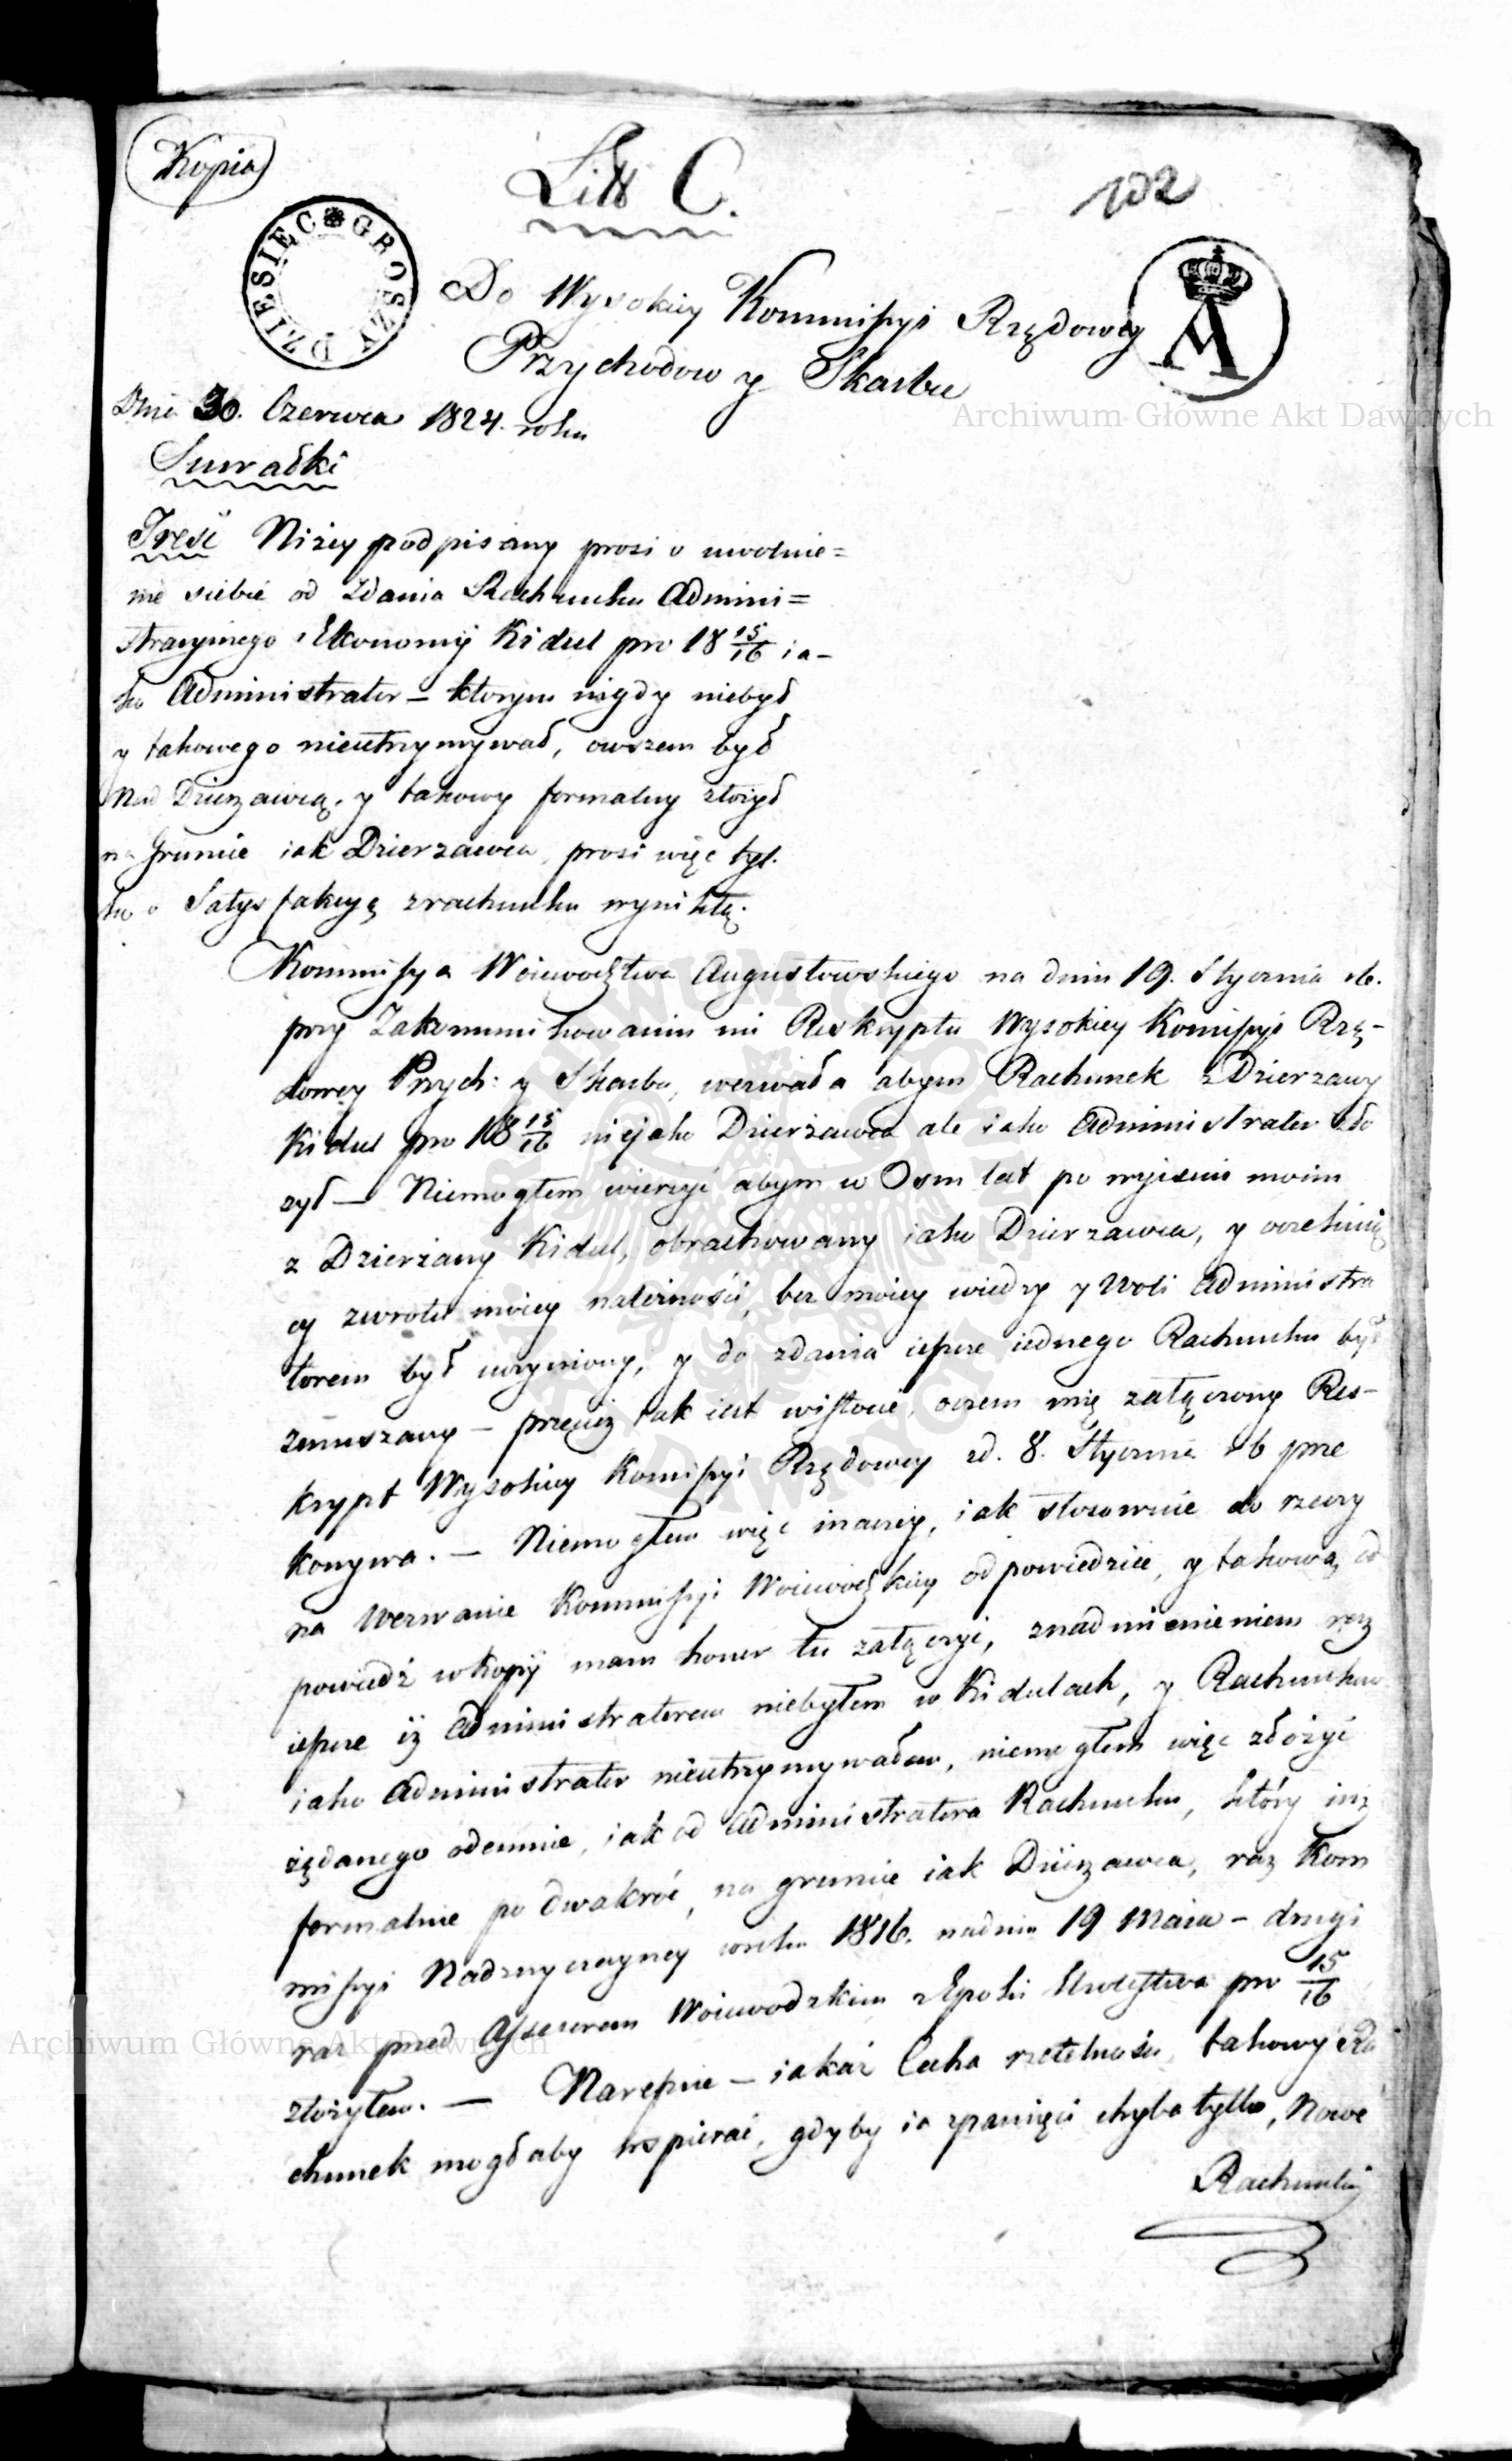 Kopia
Litt C.
102
DZIESIĘC GROSZY
A
Do Wysokiey Kommissyi Rządowey
Przychodow y Skarbu
Dnia 30. Czerwca 1824. roku
Suwałki
Treść Niżey podpisany prosi o uwolnie=
nie siebie od zdania Rachunku Admini=
stracyinego Ekonomij Kidul pro 18 15/16 ia-
ko Administrator – ktorym nigdy niebył
y takowego nieutrzymywał, owszem był
Nad Dzierzawcą, y takowy formalny złożył
na Gruncie iak Dzierzawca, prosi więc tyl-
ko o Satysfakcyą z rachunku wynikłą.
Kommissya Woiewodztwa Augustowskiego na dniu 19. Stycznia rb.
przy Zakommunikowaniu mi Reskryptu Wysokiey Komissyi Rzą-
dowey Przych: y Skarbu, wezwała abym Rachunek z Dzierzawy
Kidul pro 18 15/16 niejako Dzierżawca ale iako Administrator zło
żył — Niemogłem wierzyć abym w Osm lat po wyiściu moim
z Dzierżawy Kidul, obrachowany iako Dzierzawca, y oczekuią
cy zwrotu moiey należności, bez moiey wiedzy y Woli Administra
torem był uczyniony, y do zdania ieszcze iednego Rachunku był
zmuszany – przecież tak iest wistocie, oczem mię załączony Res-
krypt Wysokiey Komissyi Rządowey zd. 8. Stycznia rb prze
konywa. — Niemogłem więc inaczey, iak stosownie do rzeczy
na Wezwanie Kommissyi Woiewodzkiey odpowiedzieć, y takową od
powiedź w kopij mam honor tu załączyć, z nadmienieniem raz
ieszcze iż Administratorem niebyłem w Kidulach, y Rachunkow
iako Administrator nieutrzymywałem, niemogłem więc złożyć
żądanego odemnie, iak od Administratora Rachunku, który iuż
formalnie po dwakroć, na gruncie iak Dzierzawca, raz Kom
missyi Nadzwyczayney wroku 1816. nadniu 19 Maia – drugi
raz przed Assessorem Woiewodzkim z Epoki pro 15/16
złożyłem. — Nareszcie – iakaż Cecha rzetelności takowy Ra
chunek mogłaby wspierać, gdyby ia z pamięci chyba tylko, Nowe
Rachunki
Archiwum Główne Akt Dawnych
Archiwum Główne Akt Dawnych